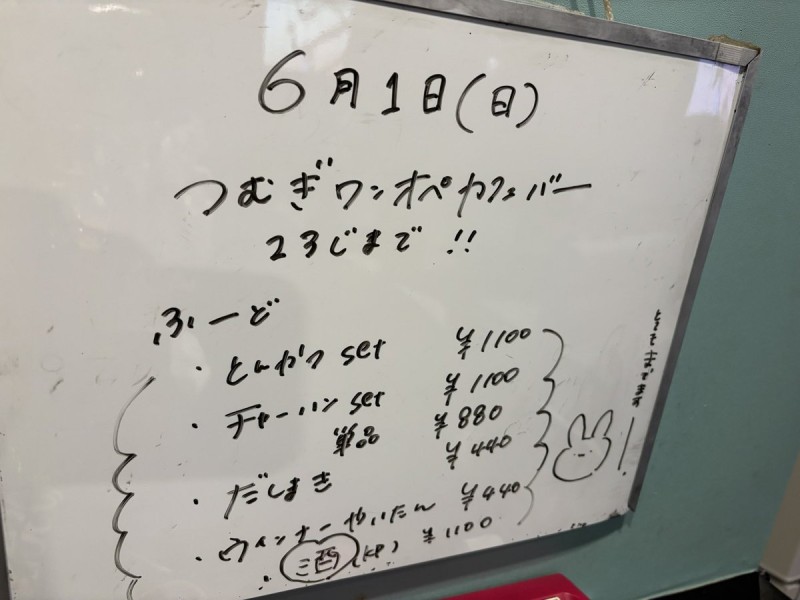 6月1日(日)
つむぎワンオペカフェバー
23じまで!!
ふーど
・とんかつ set ¥1100
・チャーハン set ¥1100
単品 ¥880
・だしまき ¥440
・ウィンナーやいたん ¥440
・酒(KP) ¥1100